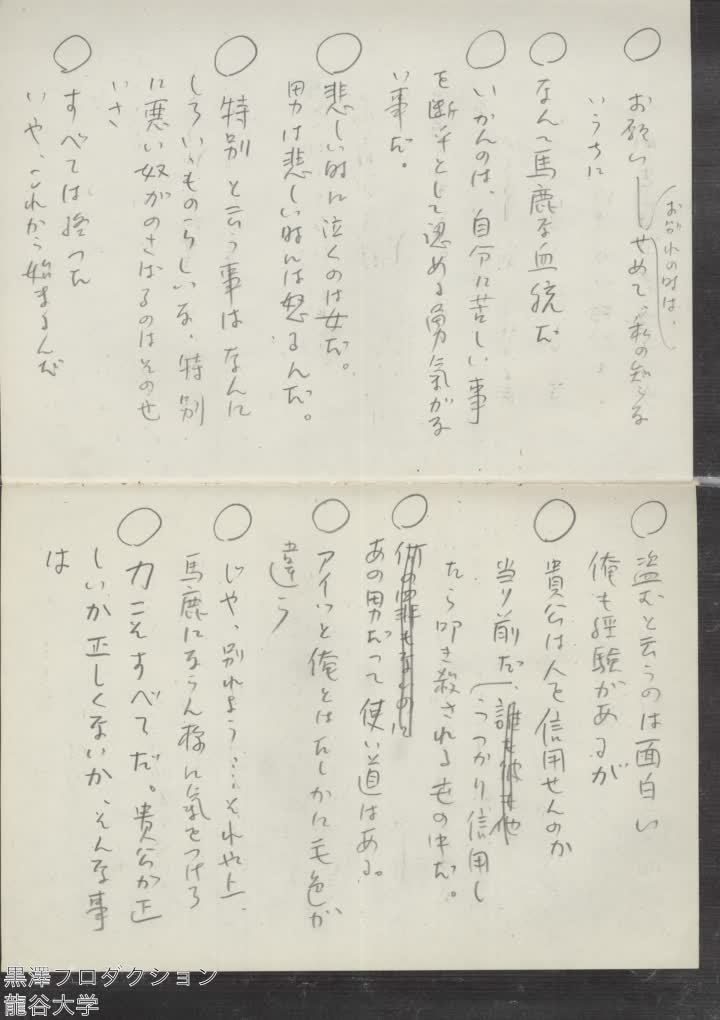 ○お願い―せめて、私の知らな
お別れの時は、
いうちに
○なんて馬鹿な血統だ
○いかんのは、自分に苦しい事
を断乎として認める勇気がな
い事だ。
○悲しい時に泣くのは女だ。
男は悲しい時には怒るんだ。
○特別と云う事はなんに
しろいゝものらしいな、特別
に悪い奴がのさばるのはそのせ
いさ
○すべては終った
いや、これから始まるんだ
○盗むと云うのは面白い
俺も経験があるが
○貴公は人を信用せんのか
当り前だ、誰も彼も他
うっかり信用し
たら叩き殺される世の中だ。
○何の罪もないのに
あの男だって使い道はある。
○アイツと俺とはたしかに毛色が
違う
○じゃ、別れよう…それ以上、
馬鹿にならん様に気をつけろ
○力こそすべてだ。貴公が正
しいか正しくないか、そんな事
は
黒澤プロダクション
龍谷大学